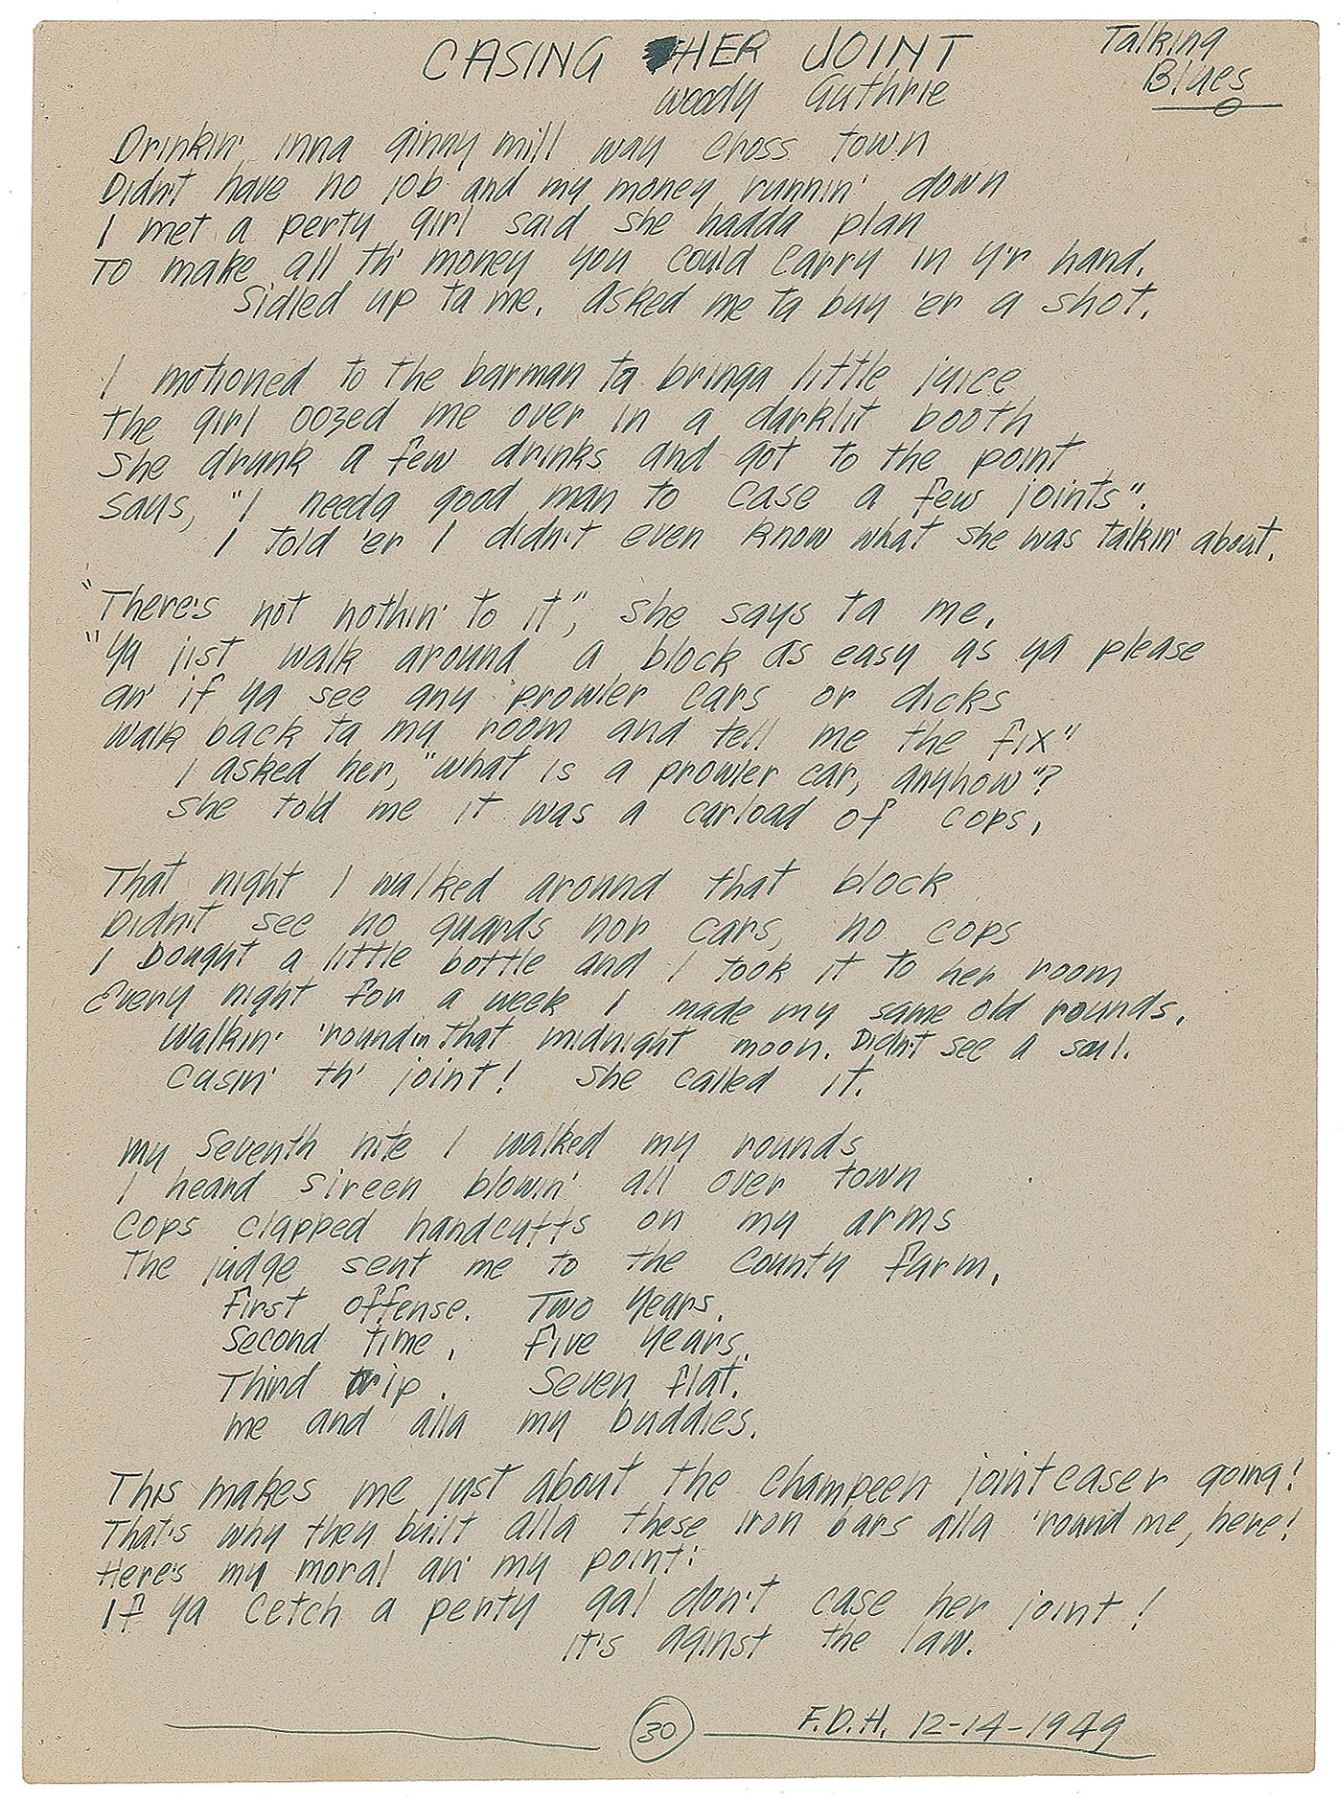 CASING HER JOINT
Talking
Blues
Woody Guthrie
Drinkin' inna ginny mill way cross town
Didn't have no job and my money runnin' down
I met a perty girl said she hadda plan
To make all th' money you could carry in y'r hand.
Sidled up ta me. Asked me ta buy 'er a shot.
I motioned to the barman ta bringa little juice
The girl oozed me over in a darklit booth
She drunk a few drinks and got to the point
Says, "I needa good man to case a few joints".
I told 'er I didn't even know what she was talkin' about.
"There's not nothin' to it", she says ta me.
"Ya jist walk around a block as easy as ya please
an' if ya see any prowler cars or dicks
Walk back ta my room and tell me the fix"
I asked her, "what is a prowler car, anyhow"?
She told me it was a carload of cops.
That night I walked around that block
Didn't see no guards nor cars, no cops
I bought a little bottle and I took it to her room
Every night for a week I made my same old rounds.
Walkin' 'round in that midnight moon. Didn't see a soul.
Casin' th' joint! She called it.
My seventh nite I walked my rounds
I heard sireen blowin' all over town
Cops clapped handcuffs on my arms
The judge sent me to the County farm.
First offense. Two Years.
Second time. Five Years.
Third trip. Seven flat.
Me and alla my buddies.
This makes me just about the champeen jointcaser going!
That's why they built alla these iron bars alla 'round me, here!
Here's my moral an' my point:
If ya cetch a perty gal don't case her joint!
It's aginst the law.
30
F.D.H. 12-14-1949